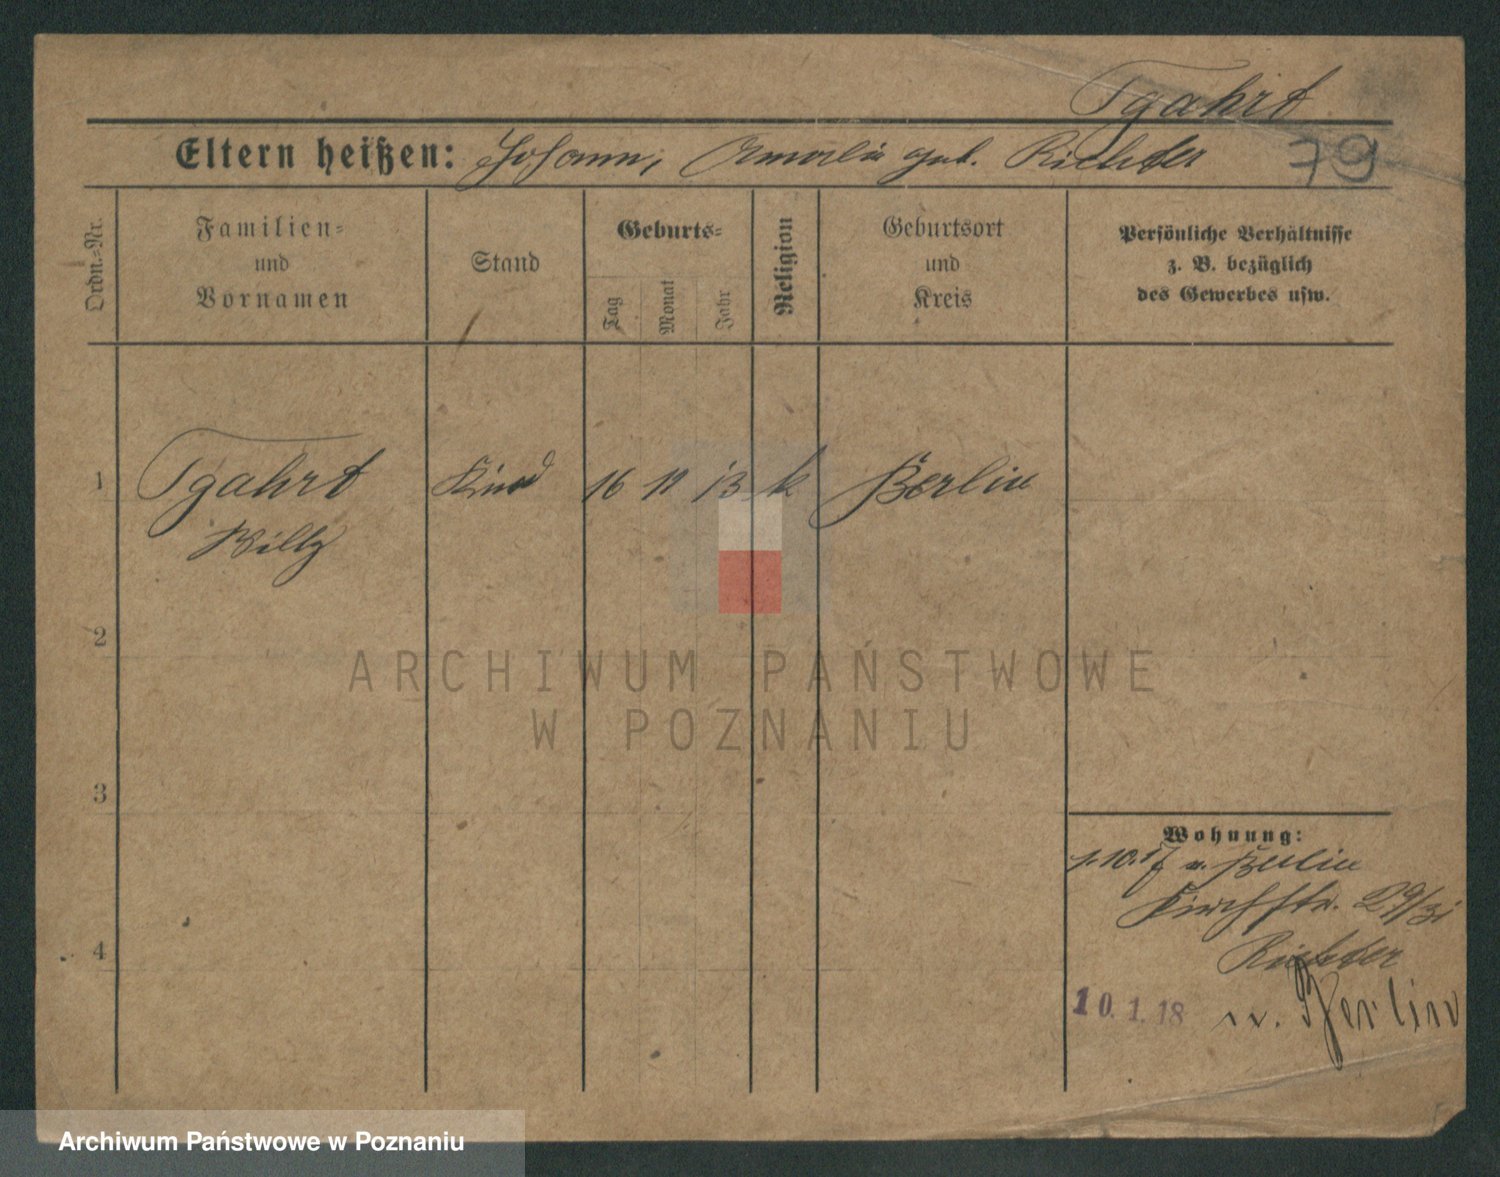 Tgahrt
Eltern heißen: Johann, Amalie geb. Richter
79
Ordn.-Nr.
Familien- und Vornamen
Stand
Geburts-
Tag
Monat
Jahr
Religion
Geburtsort und Kreis
Persönliche Verhältnisse
z. B. bezüglich
des Gewerbes usw.
1 Tgahrt Kind 16 11 13 k Berlin
Willy
2
ARCHIWUM PAŃSTWOWE
W POZNANIU
3
Wohnung:
1.10.17 v. Berlin
Kirchstr. 29/31
Richter
4
10. 1. 18 n. Berlin
Archiwum Państwowe w Poznaniu